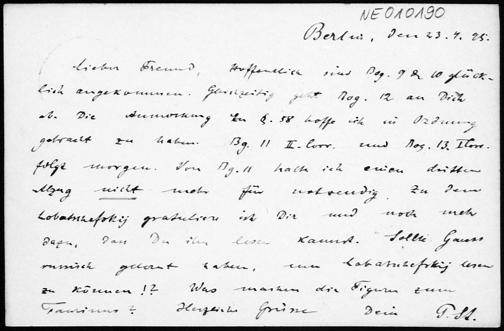 NE010190
Berlin, den 23.4.25.
Lieber Freund, Hoffentlich sind Bog. 9 & 10 glück-
lich angekommen. Gleichzeitig geht Bog. 12 an Dich
ab. Die Anmerkung zu § 58 hoffe ich in Ordnung
gebracht zu haben. Bg. 11 II. Corr. und Bog. 13 I Corr.
folgt morgen. Von Bg. 11 halte ich einen dritten
Abzug nicht mehr für notwendig. Zu dem
Lobatschefskij gratuliere ich Dir und noch mehr
dazu, dass Du ihn lesen kannst. Sollte Gauss
russisch gelernt haben, um Lobatschefskij lesen
zu können!? Was machen die Figuren zum
Taurinus? Herzliche Grüsse Dein P. St.